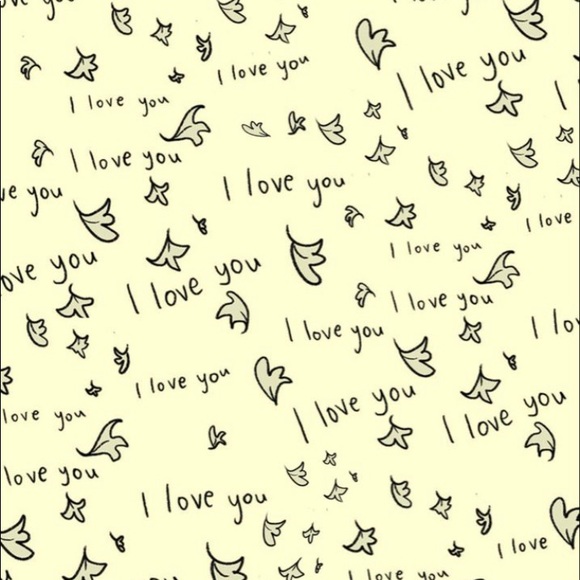 ove you
I love you
I love you
I love you
I
I love you
I love you
ve you
I love
I love you
ove you
I love you
I love you
I lo
I love you
I love you
I love you
love you
I love you
love you
I love you
I love
I love you